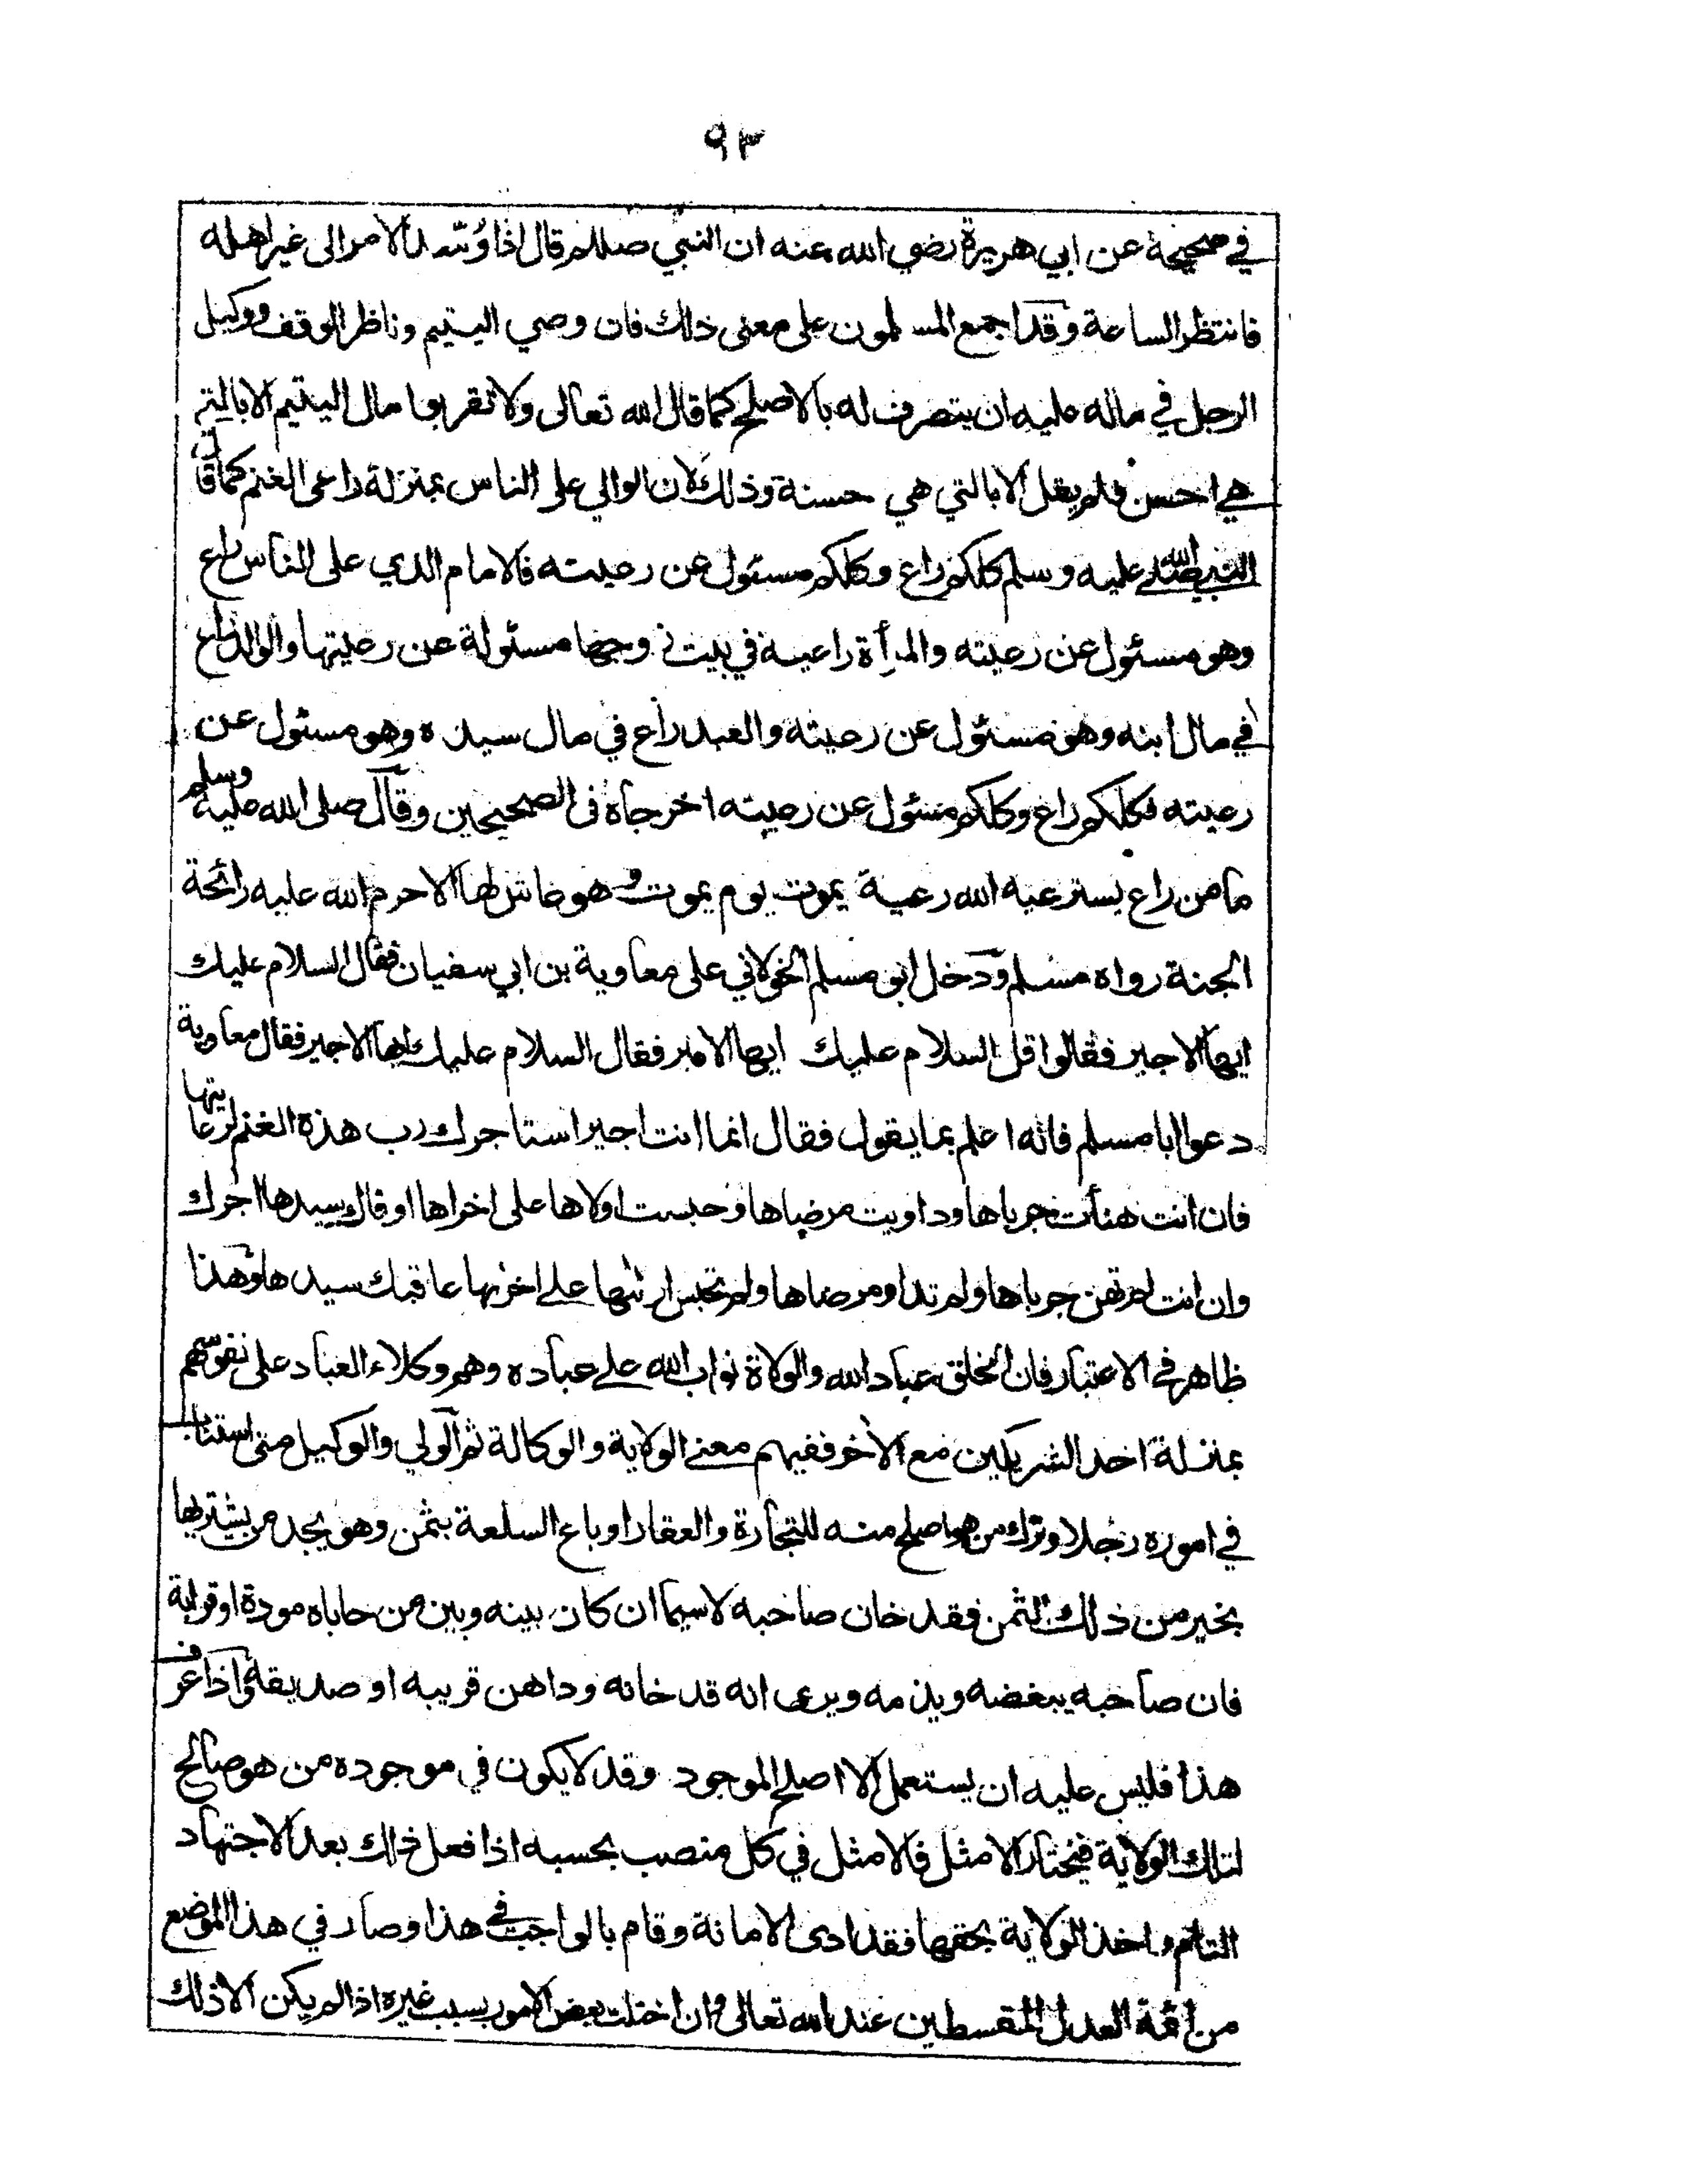 ٩٣
في صحيحة عن ابي هريرة رضي الله عنه ان النبي صللم قال اذا وُسّد الامر الى غير اهله
فانتظر الساعة وقد اجمع المسلمون على معنى ذلك فان وصي اليتيم وناظر الوقف ووكيل
الرجل في ماله عليه ان يتصرف له بالاصلح كما قال الله تعالى ولا تقربوا مال اليتيم الا بالتي
هي احسن فلم يقل الا بالتي هي حسنة وذلك لان الوالي على الناس بمنزلة راعي الغنم كما قال
النبي صلى الله عليه وسلم كلكم راع وكلكم مسئول عن رعيته فالامام الذي على الناس راع
وهو مسئول عن رعيته والمرأة راعية في بيت زوجها مسئولة عن رعيتها والوالد راع
في مال ابنه وهو مسئول عن رعيته والعبد راع في مال سيده وهو مسئول عن
رعيته فكلكم راع وكلكم مسئول عن رعيته اخرجاه فى الصحيحين وقال صلى الله عليه وسلم
ما من راع يسترعيه الله رعية يموت يوم يموت وهو غاش لها الا حرم الله عليه رائحة
الجنة رواه مسلم ودخل ابو مسلم الخولاني على معاوية بن ابي سفيان فقال السلام عليك
ايها الاجير فقالوا قل السلام عليك ايها الامير فقال السلام عليك ايها الاجير فقال معاوية
دعوا ابا مسلم فانه اعلم بما يقول فقال انما انت اجير استاجرك رب هذه الغنم لرعايتها
فان انت هنأت جرباها وداويت مرضاها وحبست اولاها على اخراها اوفاك سيدها اجرك
وان انت لم تهن جرباها ولم تداو مرضاها ولم تحبس اولها على اخرها عاقبك سيدها وهذا
ظاهر في الاعتبار فان الخلق عباد الله والولاة نواب الله على عباده وهم وكلاء العباد على نفوسهم
بمنزلة احد الشريكين مع الاخر ففيهم معنى الولاية والوكالة ثم الولي والوكيل متى استناب
في اموره رجلا وترك من هو اصلح منه للتجارة والعقار او باع السلعة بثمن وهو يجد من يشتريها
بخير من ذلك الثمن فقد خان صاحبه لاسيما ان كان بينه وبين من حاباه مودة او قرابة
فان صاحبه يبغضه ويذمه ويرى انه قد خانه وداهن قريبه او صديقه واذا عرف
هذا فليس عليه ان يستعمل الا اصلح الموجود وقد لا يكون في موجوده من هو صالح
لتلك الولاية فيختار الامثل فالامثل في كل منصب بحسبه اذا فعل ذلك بعد الاجتهاد
التام واخذ الولاية بحقها فقد ادى الامانة وقام بالواجب في هذا وصار في هذا الموضع
من ائمة العدل المقسطين عند الله تعالى وان اختلت بعض الامور بسبب غيره اذا لم يكن الا ذلك